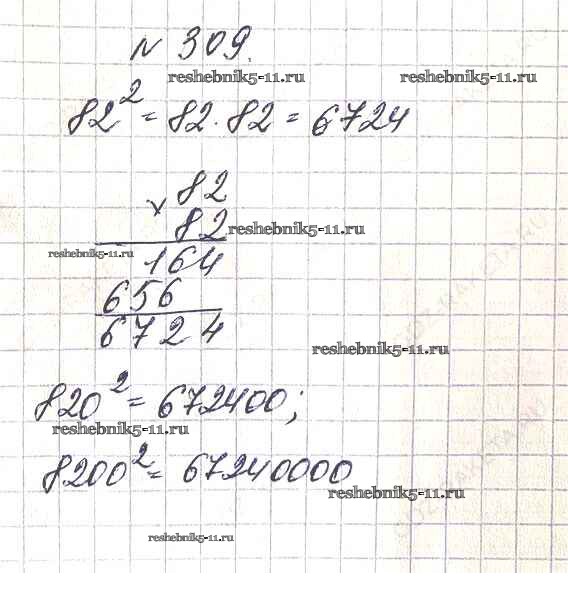 № 309.
reshebnik5-11.ru reshebnik5-11.ru
82² = 82 · 82 = 6724
× 82
82
reshebnik5-11.ru
reshebnik5-11.ru
164
656
6724
reshebnik5-11.ru
820² = 672400;
reshebnik5-11.ru
8200² = 67240000
reshebnik5-11.ru
reshebnik5-11.ru